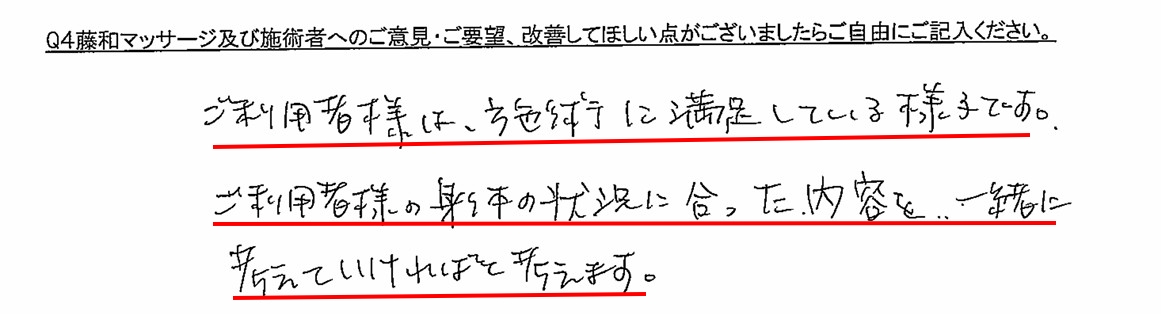 Q4藤和マッサージ及び施術者へのご意見・ご要望、改善してほしい点がございましたらご自由にご記入ください。
ご利用者様は、施術に満足している様子です。
ご利用者様の身体の状況に合った内容を、一緒に
考えていければと考えます。